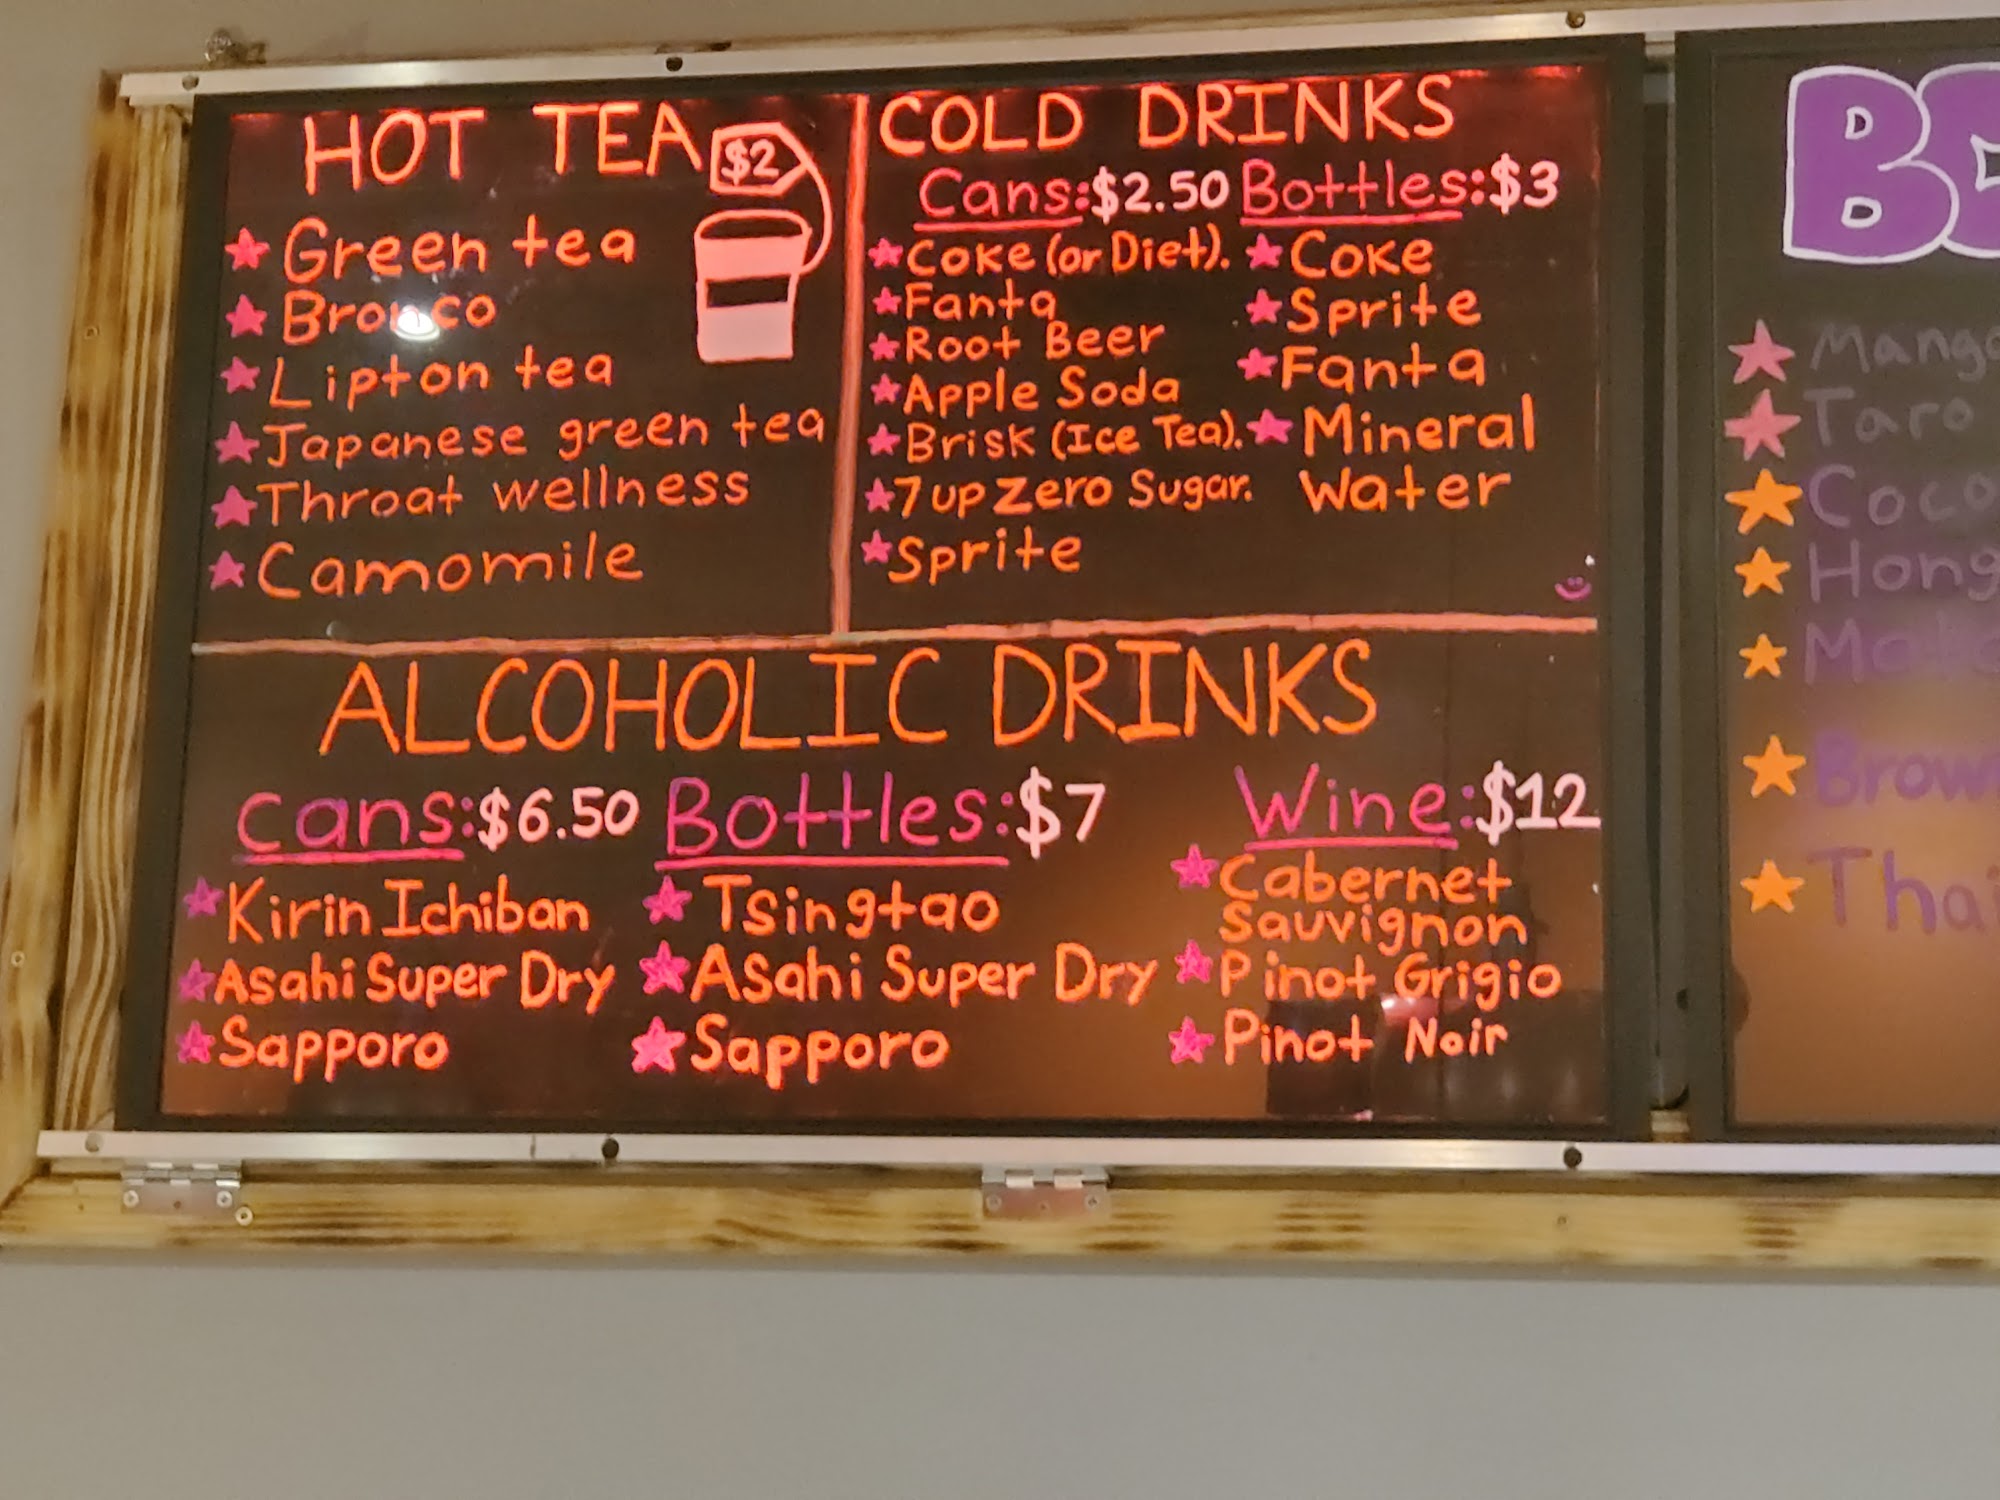 HOT TEA $2
Green tea
Bronco
Lipton tea
Japanese green tea
Throat wellness
Camomile
COLD DRINKS
Cans: $2.50
Coke (or Diet).
Fanta
Root Beer
Apple Soda
Brisk (Ice Tea).
7up Zero Sugar.
Sprite
Bottles: $3
Coke
Sprite
Fanta
Mineral
Water
ALCOHOLIC DRINKS
Cans: $6.50
Kirin Ichiban
Asahi Super Dry
Sapporo
Bottles: $7
Tsingtao
Asahi Super Dry
Sapporo
Wine: $12
Cabernet
Sauvignon
Pinot Grigio
Pinot Noir
Taro
Thai